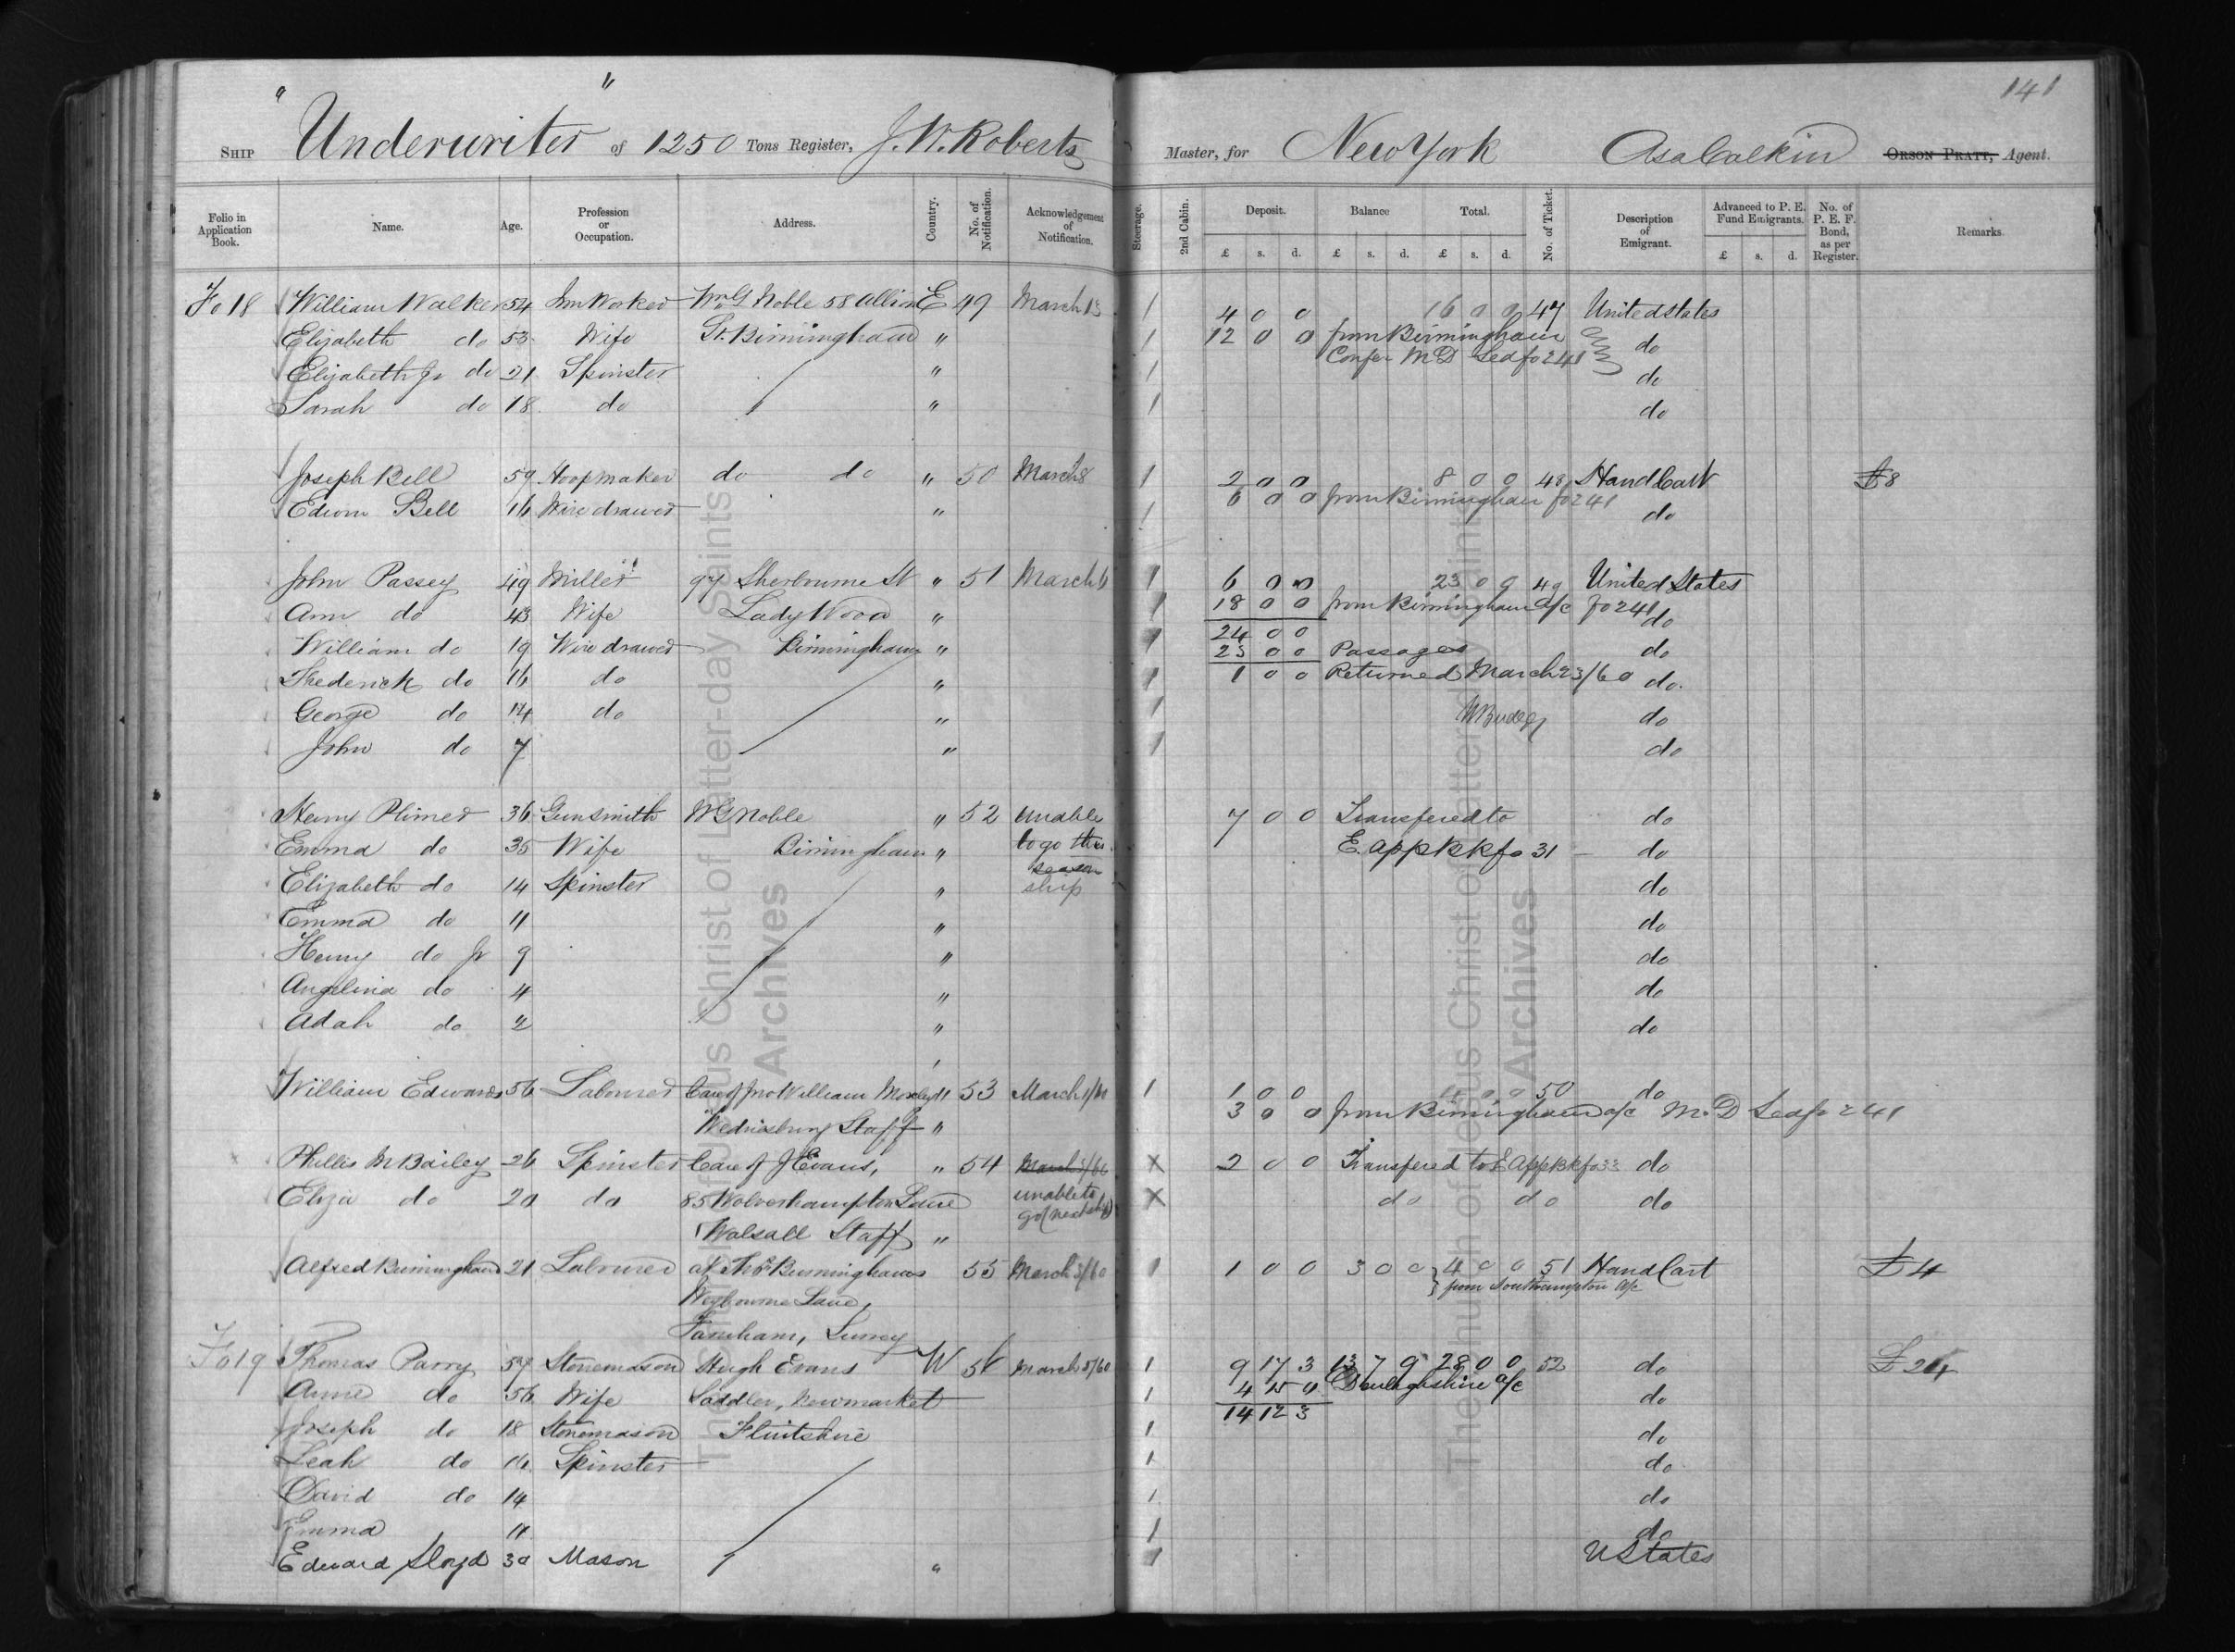 141
Ship "Underwriter" of 1250 Tons Register, J. W. Roberts Master, for New York Asa Calkin Orson Pratt, Agent.
Folio in Application Book. Name. Age. Profession or Occupation. Address. Country. No. of Notification. Acknowledgement of Notification. Steerage. 2nd Cabin. Deposit. Balance Total. No. of Ticket. Description of Emigrant. Advanced to P. E. Fund Emigrants. No. of P. E. F. Bond, as per Register. Remarks.
£ s. d. £ s. d. £ s. d. £ s. d.
Fo 18 William Walker 54 Wm G Noble 58 E 49 March 13 1 4 0 0 16 0 0 47 United States
Elizabeth do 53 Wife St. Birmingham " 1 12 0 0 from Birmingham do
Elizabeth Jr do 21 Spinster " 1 Confer M D Led fo 241 do
Sarah do 18 do " 1 do
Joseph Bell 59 Hoopmaker do do " 50 March 8 1 2 0 0 8 0 0 48 Hand Cart £8
Edwin Bell 16 Wire drawer " 1 6 0 0 from Birmingham fo 241 do
John Passey 49 Miller 97 Sherbourne St " 51 March 6 1 6 0 0 23 0 0 49 United States
Ann do 43 Wife Lady Wood " 1 18 0 0 from Birmingham a/c fo 241 do
William do 19 Wire drawer Birmingham " 1 24 0 0 do
23 0 0 Passages
Frederick do 16 do " 1 1 0 0 Returned March 23/60 do.
George do 14 do " 1 do
John do 7 " 1 do
Henry Plimer 36 Gunsmith W G Noble " 52 unable 7 0 0 Transfered to do
Emma do 35 Wife Birmingham " to go this E. App Bk fo 31 do
season
Elizabeth do 14 Spinster " ship do
Emma do 11 " do
Henry do Jr 9 " do
Angelina do 4 " do
Adah do 2 " do
William Edwards 56 Labourer Care of William " 53 March 1 1 0 0 4 0 0 50 do
Wednesbury Staff " 3 0 0 from Birmingham a/c M. D Led fo 241
Phillis M Bailey 26 Spinster Care of J Evans, " 54 March /60 X 2 0 0 Transfered to E App Bk fo 33 do
Eliza do 20 do 85 Wolverhampton Lane unable to X do do do
go (next ship)
Walsall Staff "
Alfred Birmingham 21 Labourer at Thos Birminghams 55 March 3/60 1 1 0 0 3 0 0 4 0 0 51 Hand Cart £4
Lane, from Southampton a/c
Farnham, Surrey
Fo 19 Thomas Parry 57 Stonemason Hugh Evans W 56 March 5/60 1 9 17 3 13 7 9 28 0 0 52 do £24
Anne do 56 Wife Saddler, Newmarket 1 4 15 0 Denbighshire a/c do
14 12 3
Joseph do 18 Stonemason Flintshire 1 do
Leah do 16 Spinster 1 do
David do 14 1 do
Emma 11 1 do
Edward Lloyd 30 Mason " 1 U States
The Church of Jesus Christ of Latter-day Saints
Archives
The Church of Jesus Christ of Latter-day Saints
Archives